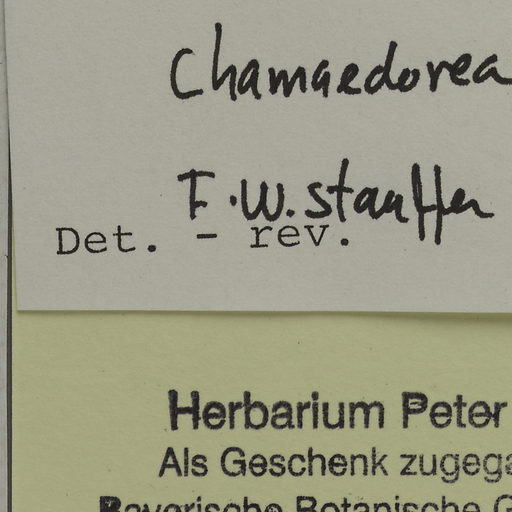 Chamaedorea
F.W. Stauffer
Det. - rev.
Herbarium Peter
Als Geschenk zugega
Bayerische Botanische G